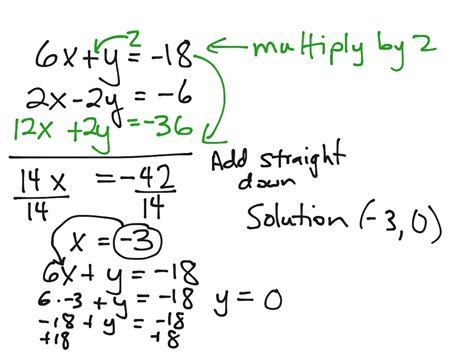 2
6x+y=-18 ← multiply by 2
2x-2y=-6
12x+2y=-36
Add straight down
14x = -42
14 14
Solution (-3,0)
x = -3
6x+y=-18
6·-3+y=-18 y=0
-18+y=-18
+18 +18